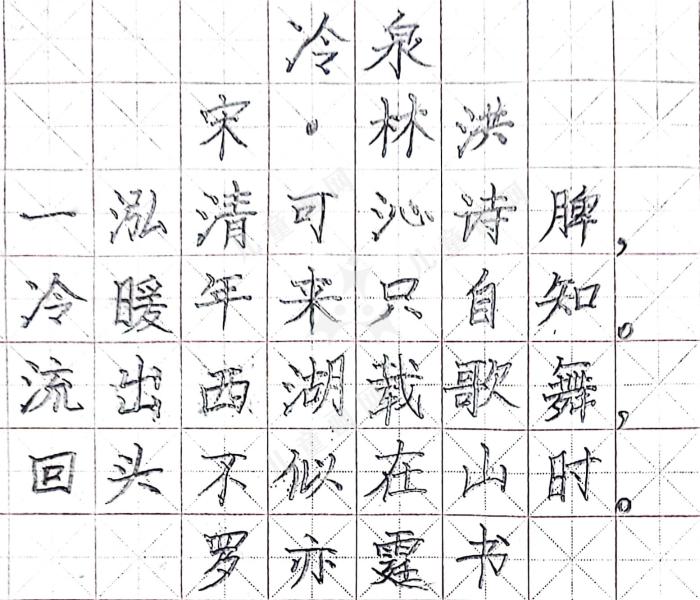 冷泉
宋·林洪
一泓清可沁诗脾，
冷暖年来只自知。
流出西湖载歌舞，
回头不似在山时。
罗亦霆书